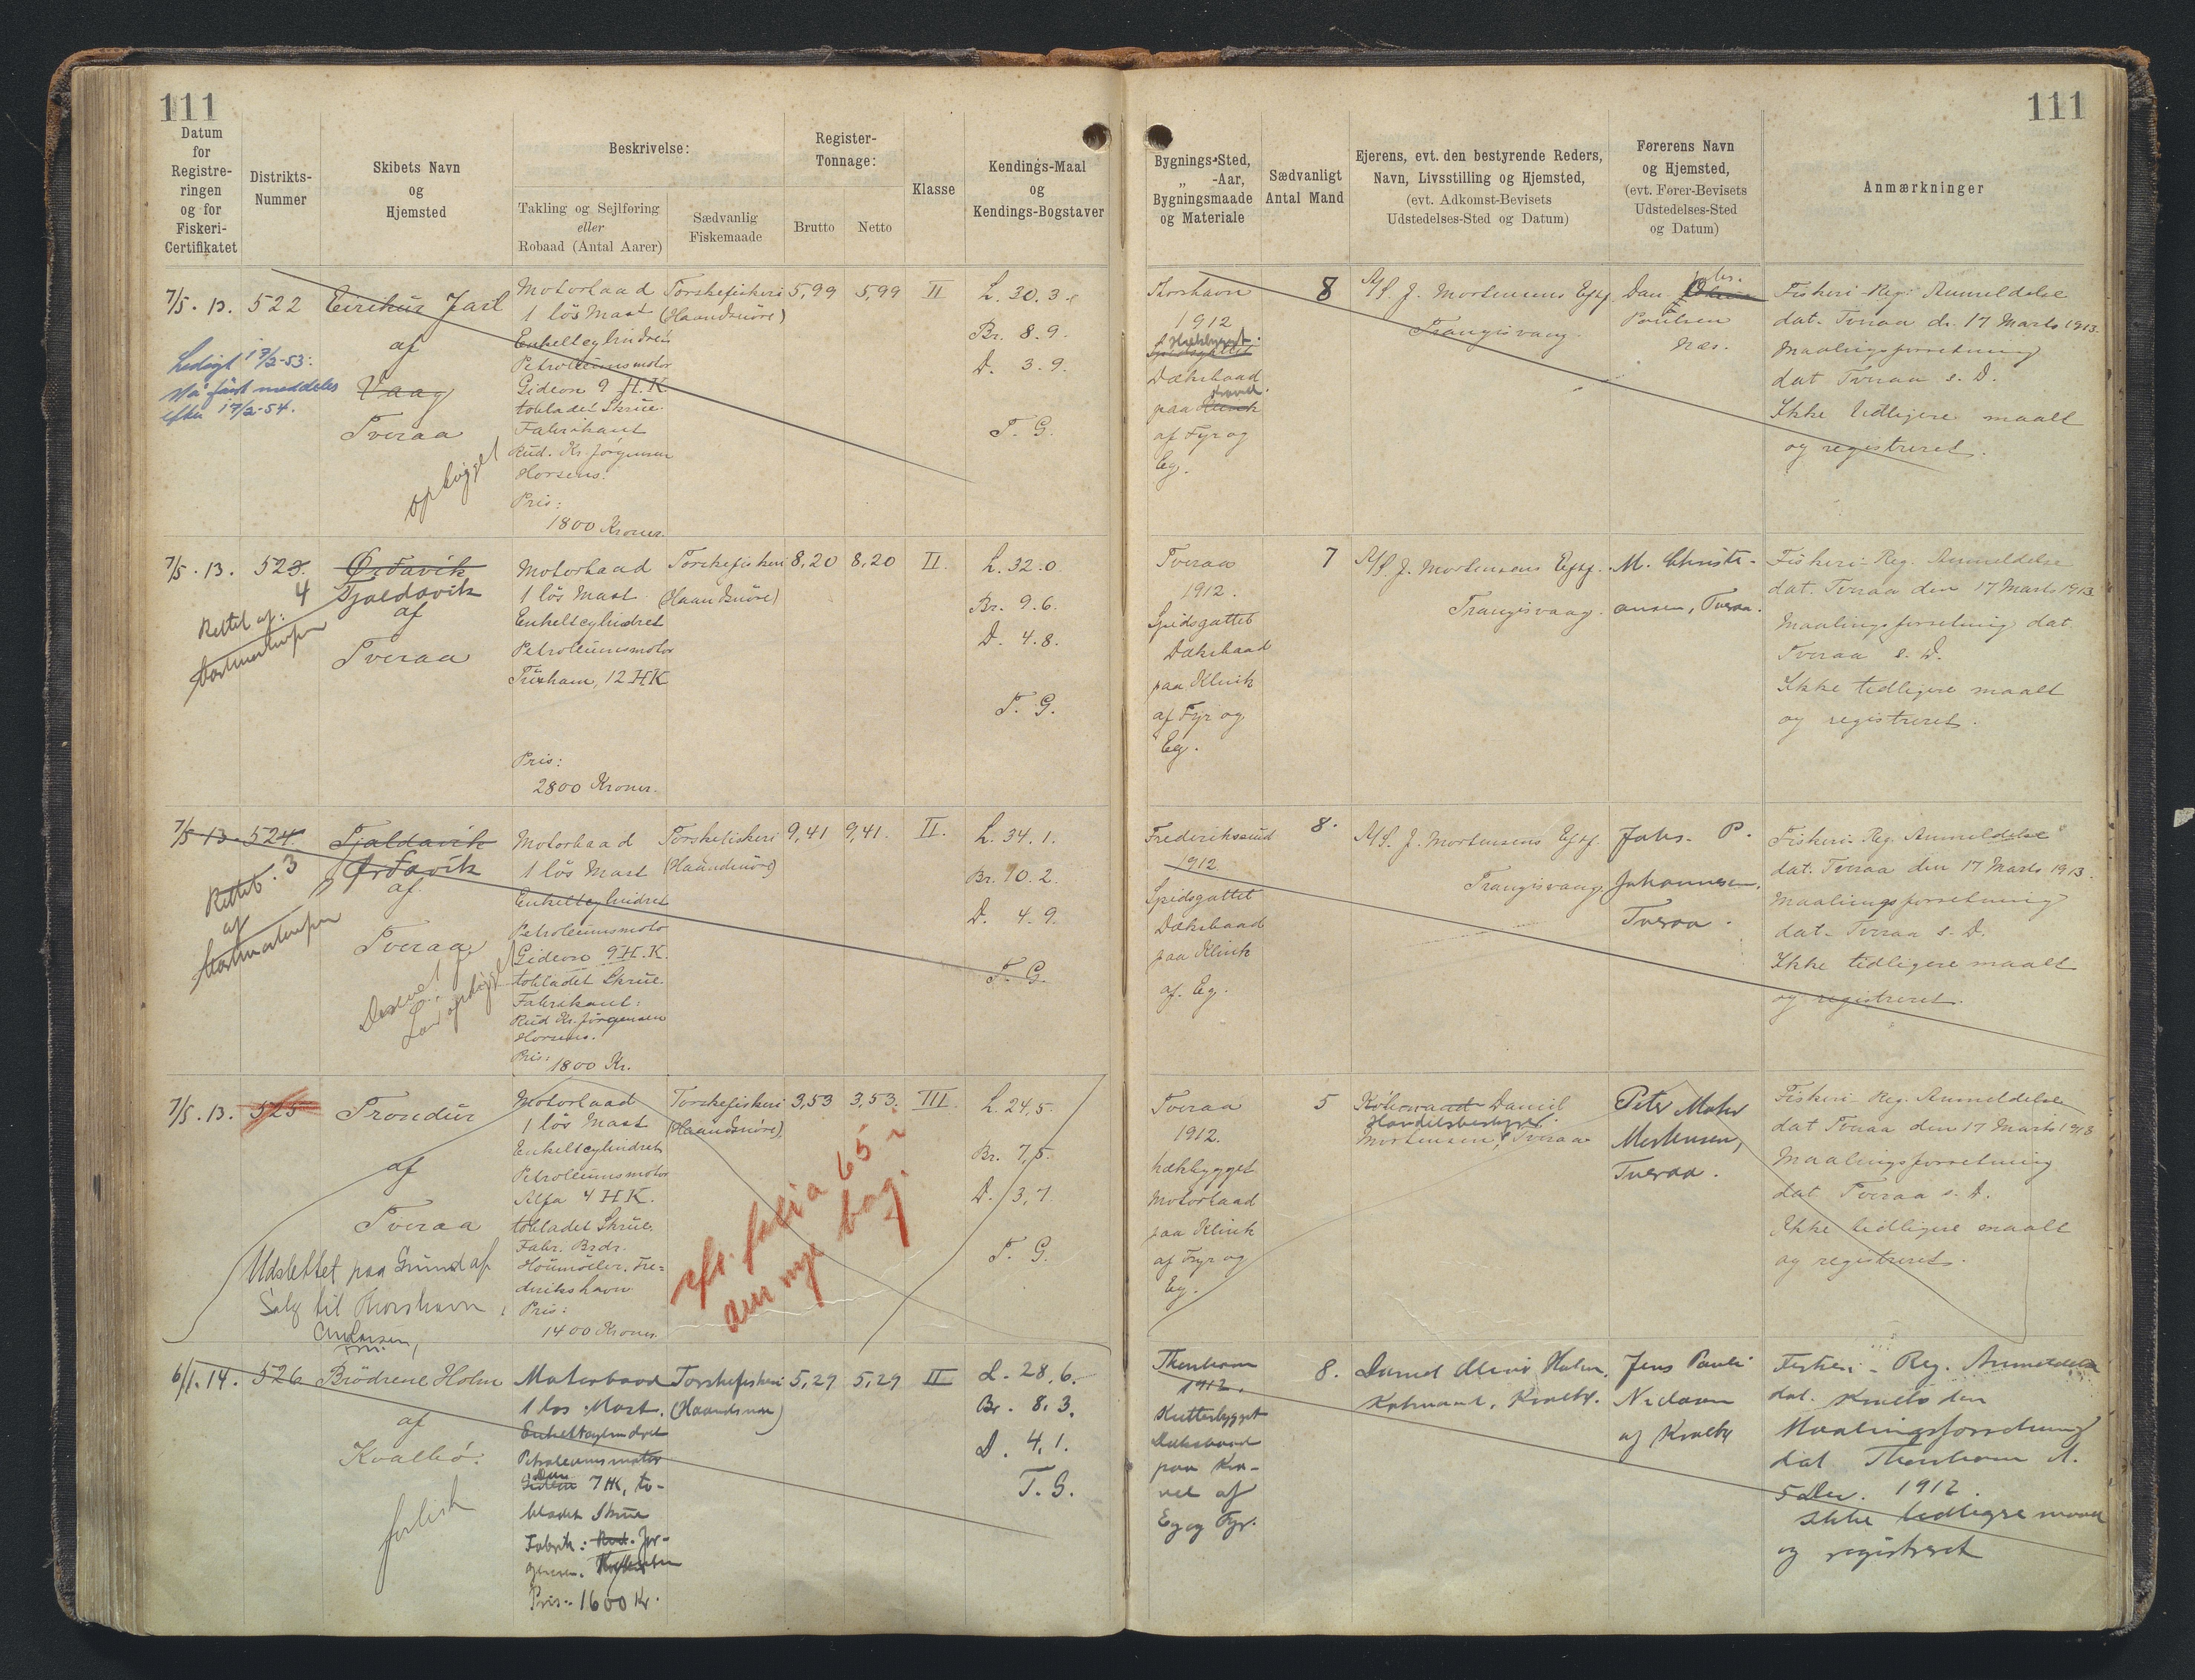 111
111
Datum
for
Registre-
ringen
og for
Fiskeri-
Certifikatet
Distrikts-
Nummer
Skibets Navn
og
Hjemsted
Beskrivelse:
Takling og Sejlføring
eller
Robaad (Antal Aarer)
Sædvanlig
Fiskemaade
Register-
Tonnage:
Brutto
Netto
Klasse
Kendings-Maal
og
Kendings-Bogstaver
Bygnings-Sted,
„ -Aar,
Bygningsmaade
og Materiale
Sædvanligt
Antal Mand
Ejerens, evt. den bestyrende Reders,
Navn, Livsstilling og Hjemsted,
(evt. Adkomst-Bevisets
Udstedelses-Sted og Datum)
Førerens Navn
og Hjemsted,
(evt. Fører-Bevisets
Udstedelses-Sted
og Datum)
Anmærkninger
7/5. 13.
522
Eirikur Jarl
af
Vaag
Tveraa
Ledigt 17/2-53:
Må først meddeles
efter 17/2-54.
ophugget
Motorbaad
1 lös Mast
Enkeltcylindret
Petroleumsmotor
Gideon 9 H.K
tobladet Skrue.
Fabrikant
Rud. Kr. Jörgensen
Horsens.
Pris:
1800 Kroner.
Torskefiskeri
(Haandsnöre)
5,99
5,99
II
L. 30.3.
Br. 8.9.
D. 3.9.
T. G.
Thorshavn
1912
Spidsgattet
Dæksbaad
paa Klink
af Fyr og
Eg.
8
A/S. J. Mortensens Eftf
Trangisvaag.
Dan.
Poulsen
Næs.
Fiskeri-Reg. Anmeldelse
dat. Tveraa d. 17 Marts 1913.
Maalingsforretning
dat Tveraa s. D.
Ikke tidligere maalt
og registreret.
7/5. 13.
523.
4
Rettet af:
Ørdavik
Tjaldavik
af
Tveraa
Motorbaad
1 lös Mast
Enkeltcylindret
Petroleumsmotor
Tuxham, 12 HK
Pris:
2800 Kroner.
Torskefiskeri
(Haandsnöre)
8,20
8,20
II.
L. 32.0.
Br. 9.6.
D. 4.8.
T. G.
Tveraa
1912.
Spidsgattet
Dæksbaad
paa Klink
af Fyr og
Eg.
7
A/S. J. Mortensens Eftf.
Trangisvaag.
M. Christi-
ansen, Tveraa.
Fiskeri-Reg. Anmeldelse
dat. Tveraa den 17 Marts 1913.
Maalingsforretning dat.
Tveraa s. D.
Ikke tidligere maalt
og registreret.
7/5 13.
524.
Rettet 3
af
Tjaldavik
Ørdavik
af
Tveraa
Motorbaad
1 lös Mast
Enkeltcylindret
Petroleumsmoto
Gideon 9 H.K.
tobladet Skrue.
Fabrikant:
Rud Kr. Jörgensen
Horsens.
Pris: 1800 Kr.
Torskefiskeri
(Haandsnöre)
9,41
9,41.
II.
L. 34.1.
Br. 10.2.
D. 4.9.
T. G.
Frederikssund
1912
Spidsgattet
Dæksbaad
paa Klink
af. Eg.
8.
A/S. J. Mortensens Eftf.
Trangisvaag.
Johs. P.
Johannesen,
Tveraa.
Fiskeri-Reg. Anmeldelse
dat. Tveraa den 17 Marts 1913.
Maalingsforretning
dat. Tveraa s. D.
Ikke tidligere maalt
og registreret.
7/5. 13.
525
Trondur
af
Tveraa
Udslettet paa Grund af
Salg til Thorshavn
Motorbaad
1 lös Mast
Enkeltcylindret
Petroleumsmotor
Alfa 4 H.K.
tobladet Skrue.
Fabr. Brdr.
Houmöller, Fre-
derikshavn
Pris:
1400 Kroner.
Torskefiskeri
(Haandsnöre)
3,53
3,53.
III.
L. 24.5.
Br. 7,5.
D. 3,7.
T. G.
Tveraa
1912.
hækbygget
Motorbaad
paa Klink
af Fyr og
Eg.
5
Købmand Daniel
Handelsbestyrer
Mortensen, Tveraa
Peter Mohr
Mortensen,
Tveraa.
Fiskeri-Reg. Anmeldelse
dat Tveraa den 17 Marts 1913
Maalingsforretning
dat Tveraa s. D.
Ikke tidligere maalt
og registreret.
6/1. 14.
526
Brödrene Holm
af
Kvalbö.
forlist
Motorbaad
1 løs Mast.
Enkeltcylindret
Petroleumsmotor
Dan
Gideon 7 HK, to-
bladet Skrue
Fabrik: Rud. Jör-
gensen.
Pris: 1600 Kr.
Torskefiskeri
(Haandsnøre)
5,29
5,29
II
L. 28,6.
Br. 8.3.
D. 4,1.
T. G.
Thorshavn
1912.
Kutterbygget
Dæksbaad
paa Kra-
vel af
Eg og Fyr.
8.
Daniel Holm,
Købmand, Kvalbø.
Jens Pauli
af Kvalbø
Fiskeri-Reg. Anmeldelse
dat. Kvalbö den
Maalingsforretning
dat Thorshavn d.
5 Dec. 1912.
Ikke tidligere maalt
og registreret